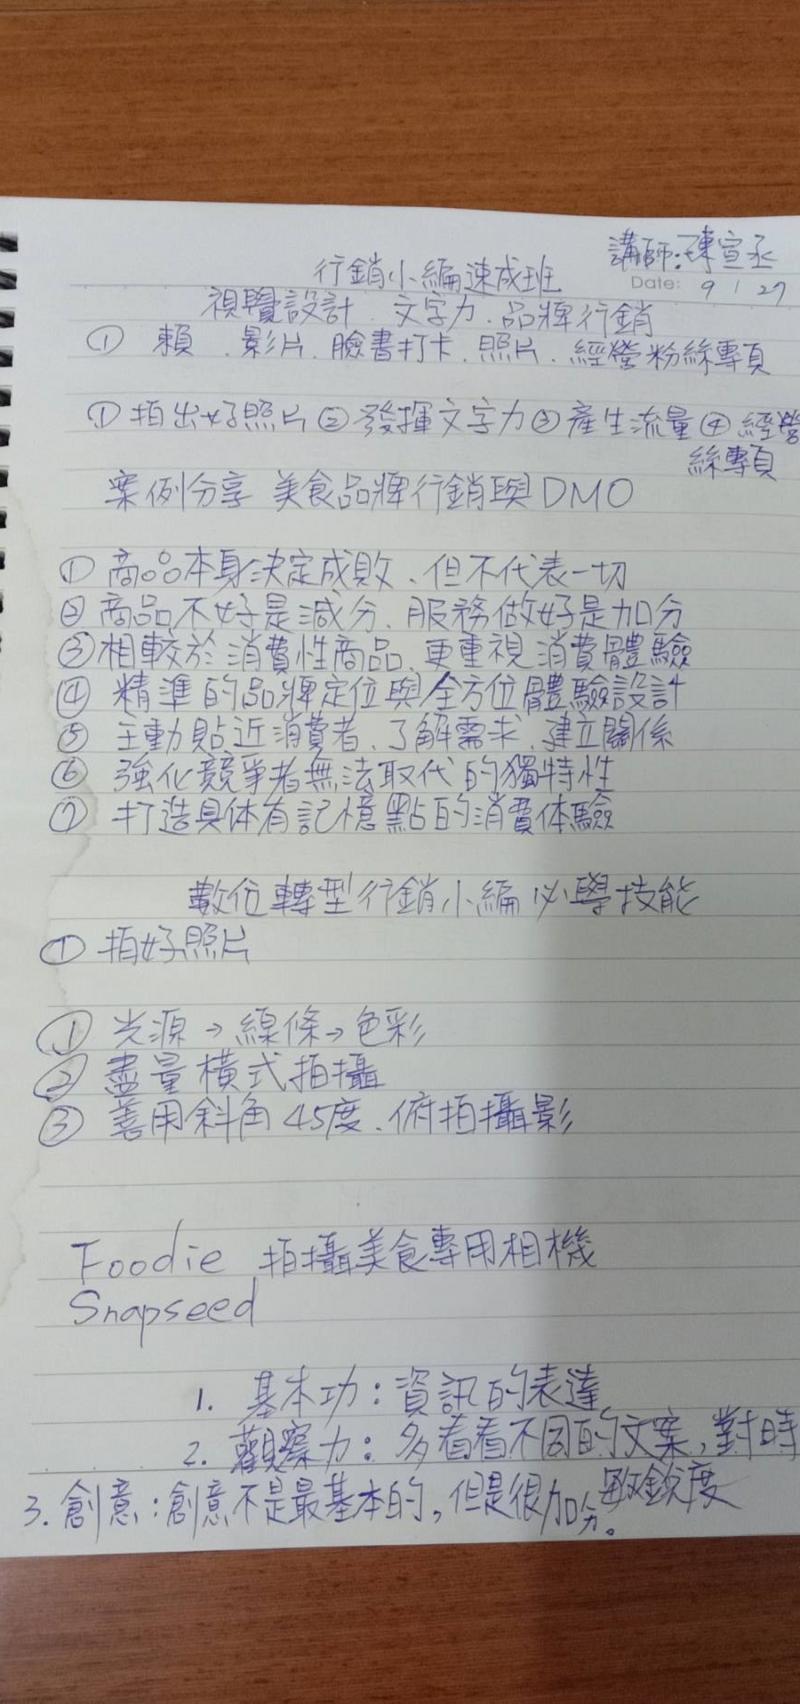 講師:陳宣丞
行銷小編速成班
Date: 9 / 27
視覺設計 文字力.品牌行銷
① 賴.影片.臉書打卡.照片.經營粉絲專頁
① 拍出好照片 ② 發揮文字力 ③ 產生流量 ④ 經營
絲專頁
案例分享 美食品牌行銷與DMO
① 商品本身決定成敗、但不代表一切
② 商品不好是減分.服務做好是加分
③ 相較於消費性商品.更重視消費體驗
④ 精準的品牌定位與全方位體驗設計
⑤ 主動貼近消費者.了解需求.建立關係
⑥ 強化競爭者無法取代的獨特性
⑦ 打造具体有記憶點的消費体驗
數位轉型行銷小編必學技能
① 拍好照片
① 光源→線條→色彩
② 盡量橫式拍攝
③ 善用斜角45度.俯拍攝影
Foodie 拍攝美食專用相機
Snapseed
1. 基本功:資訊的表達
2. 觀察力:多看看不同的文案,對時
敏銳度
3. 創意:創意不是最基本的,但是很加分。